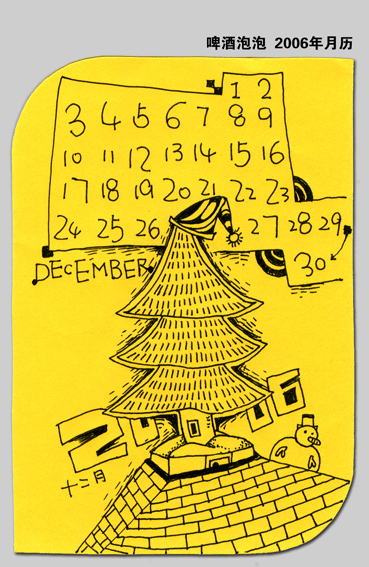 啤酒泡泡 2006年月历
1 2
3 4 5 6 7 8 9
10 11 12 13 14 15 16
17 18 19 20 21 22 23
24 25 26 27 28 29
30
DECEMBER
十二月